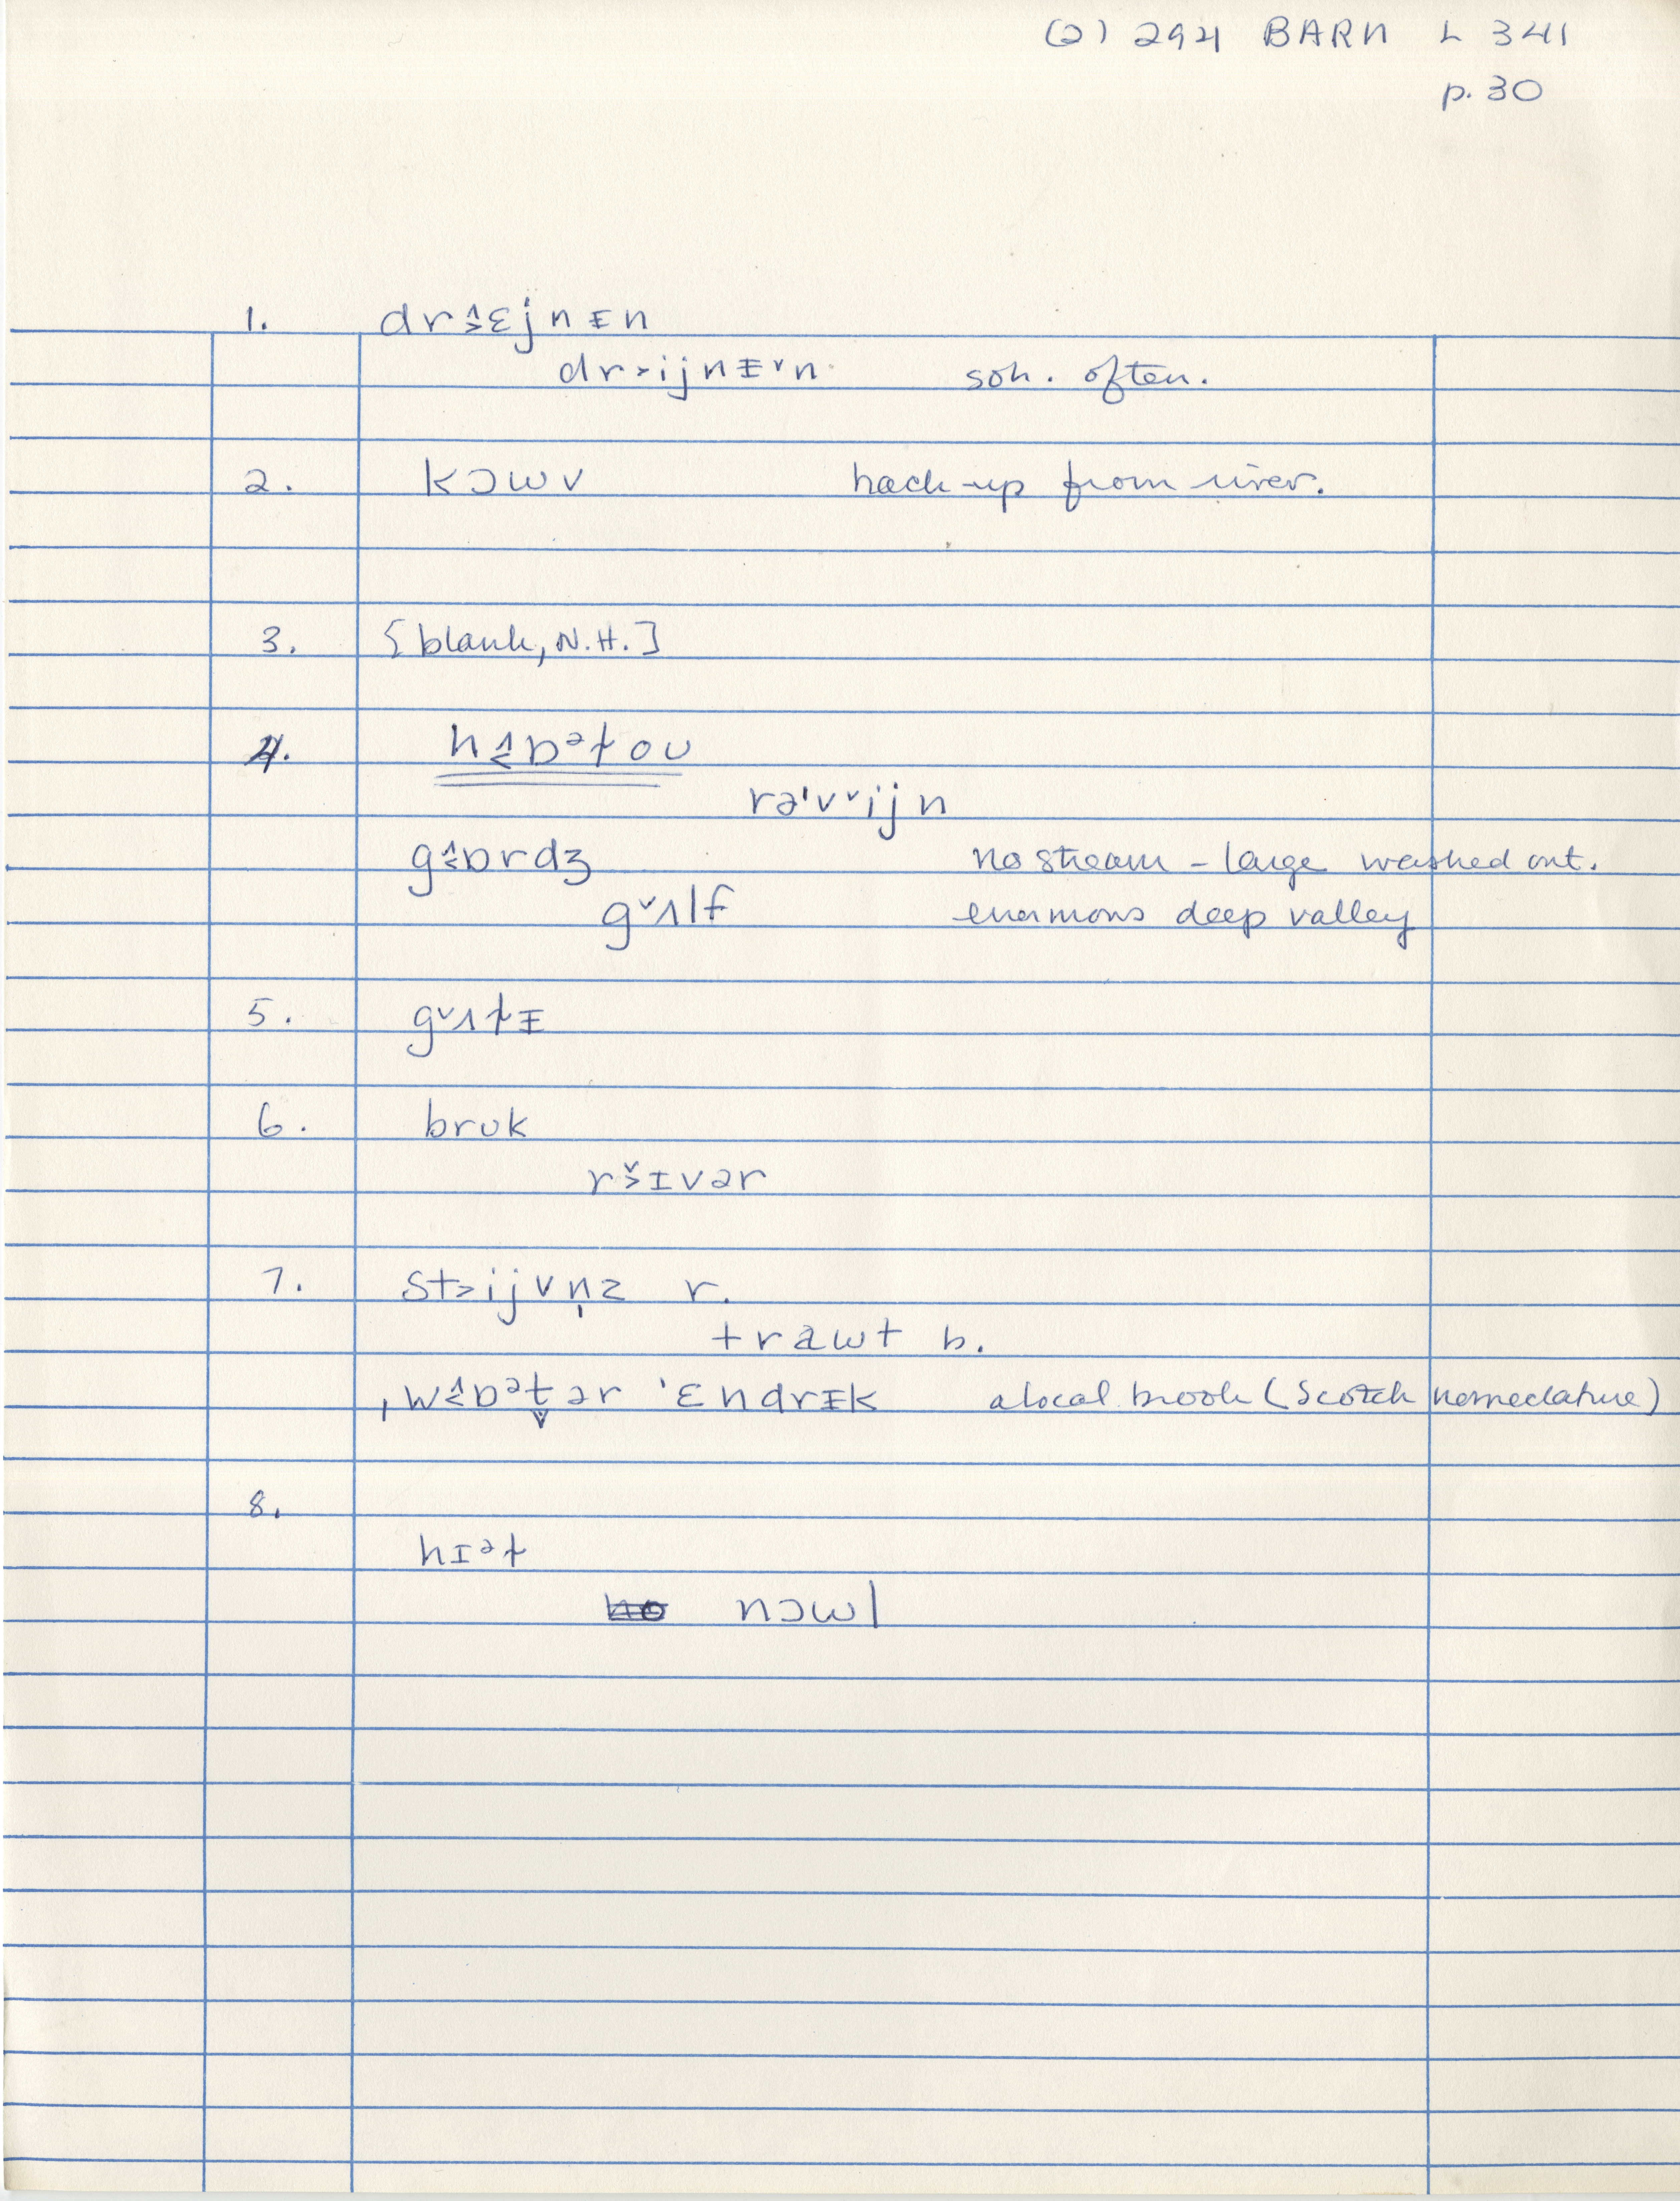 (2) 294 BARN L 341
p. 30
1. drɛjnɪn
dr˃ijnɪ˅n soh. often.
2. kɔwv back up from river.
3. [blank, N.H.]
4. hɒᵊɫoʊ
rə'v˅ijn
gɒrdʒ no stream - large washed out.
g˅ʌlf enormous deep valley
5. g˅ʌɫɪ
6. brʊk
rɪvər
7. st˃ijvn̩z r.
trawt b.
ˌwɒᵊt̬ər 'ɛndrɪk a local brook (Scotch nomeclature)
8.
hɪᵊɫ
nɔwl